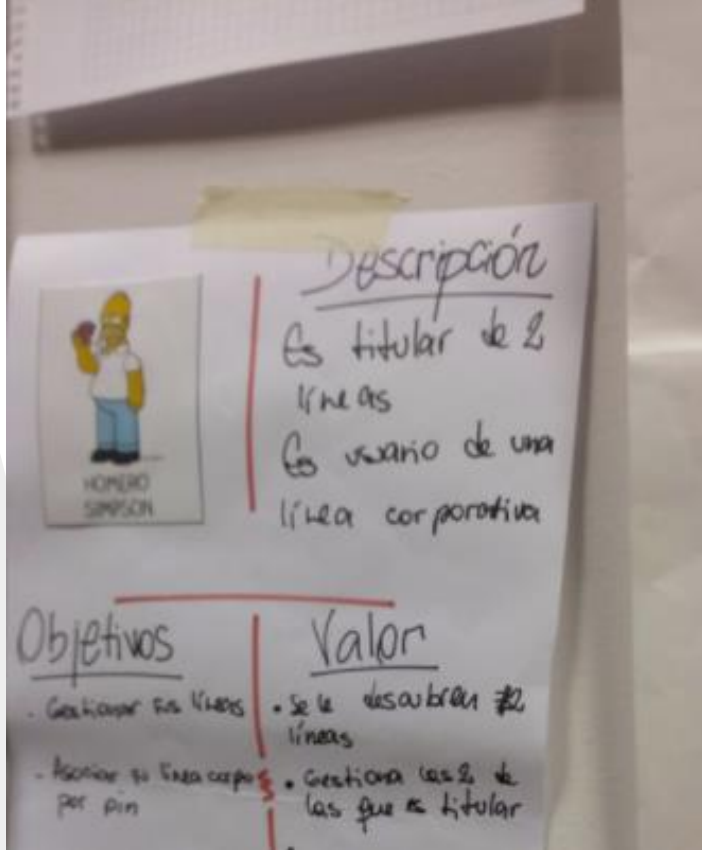 HOMERO
SIMPSON
Descripción
Es titular de 2
líneas
Es usuario de una
línea corporativa
Objetivos
. Gestionar sus líneas
. Asociar su línea corpo
por pin
Valor
• Se le descubren 2
líneas
• Gestiona las 2 de
las que es titular